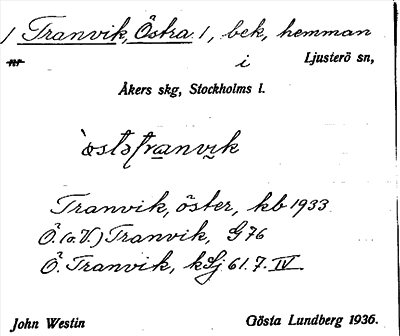 / Tranvik, Östra /, bek, hemman
nr i Ljusterö sn,
Åkers skg, Stockholms l.
Tranvik, öster, kb 1933
Ö. (o. V.) Tranvik, G 76
Ö. Tranvik, kSj 61. 7. IV.
John Westin Gösta Lundberg 1936.